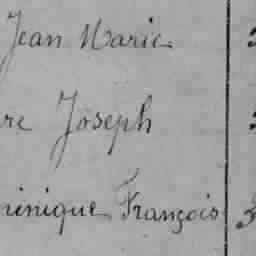 Jean Marie
re Joseph
minique François 3